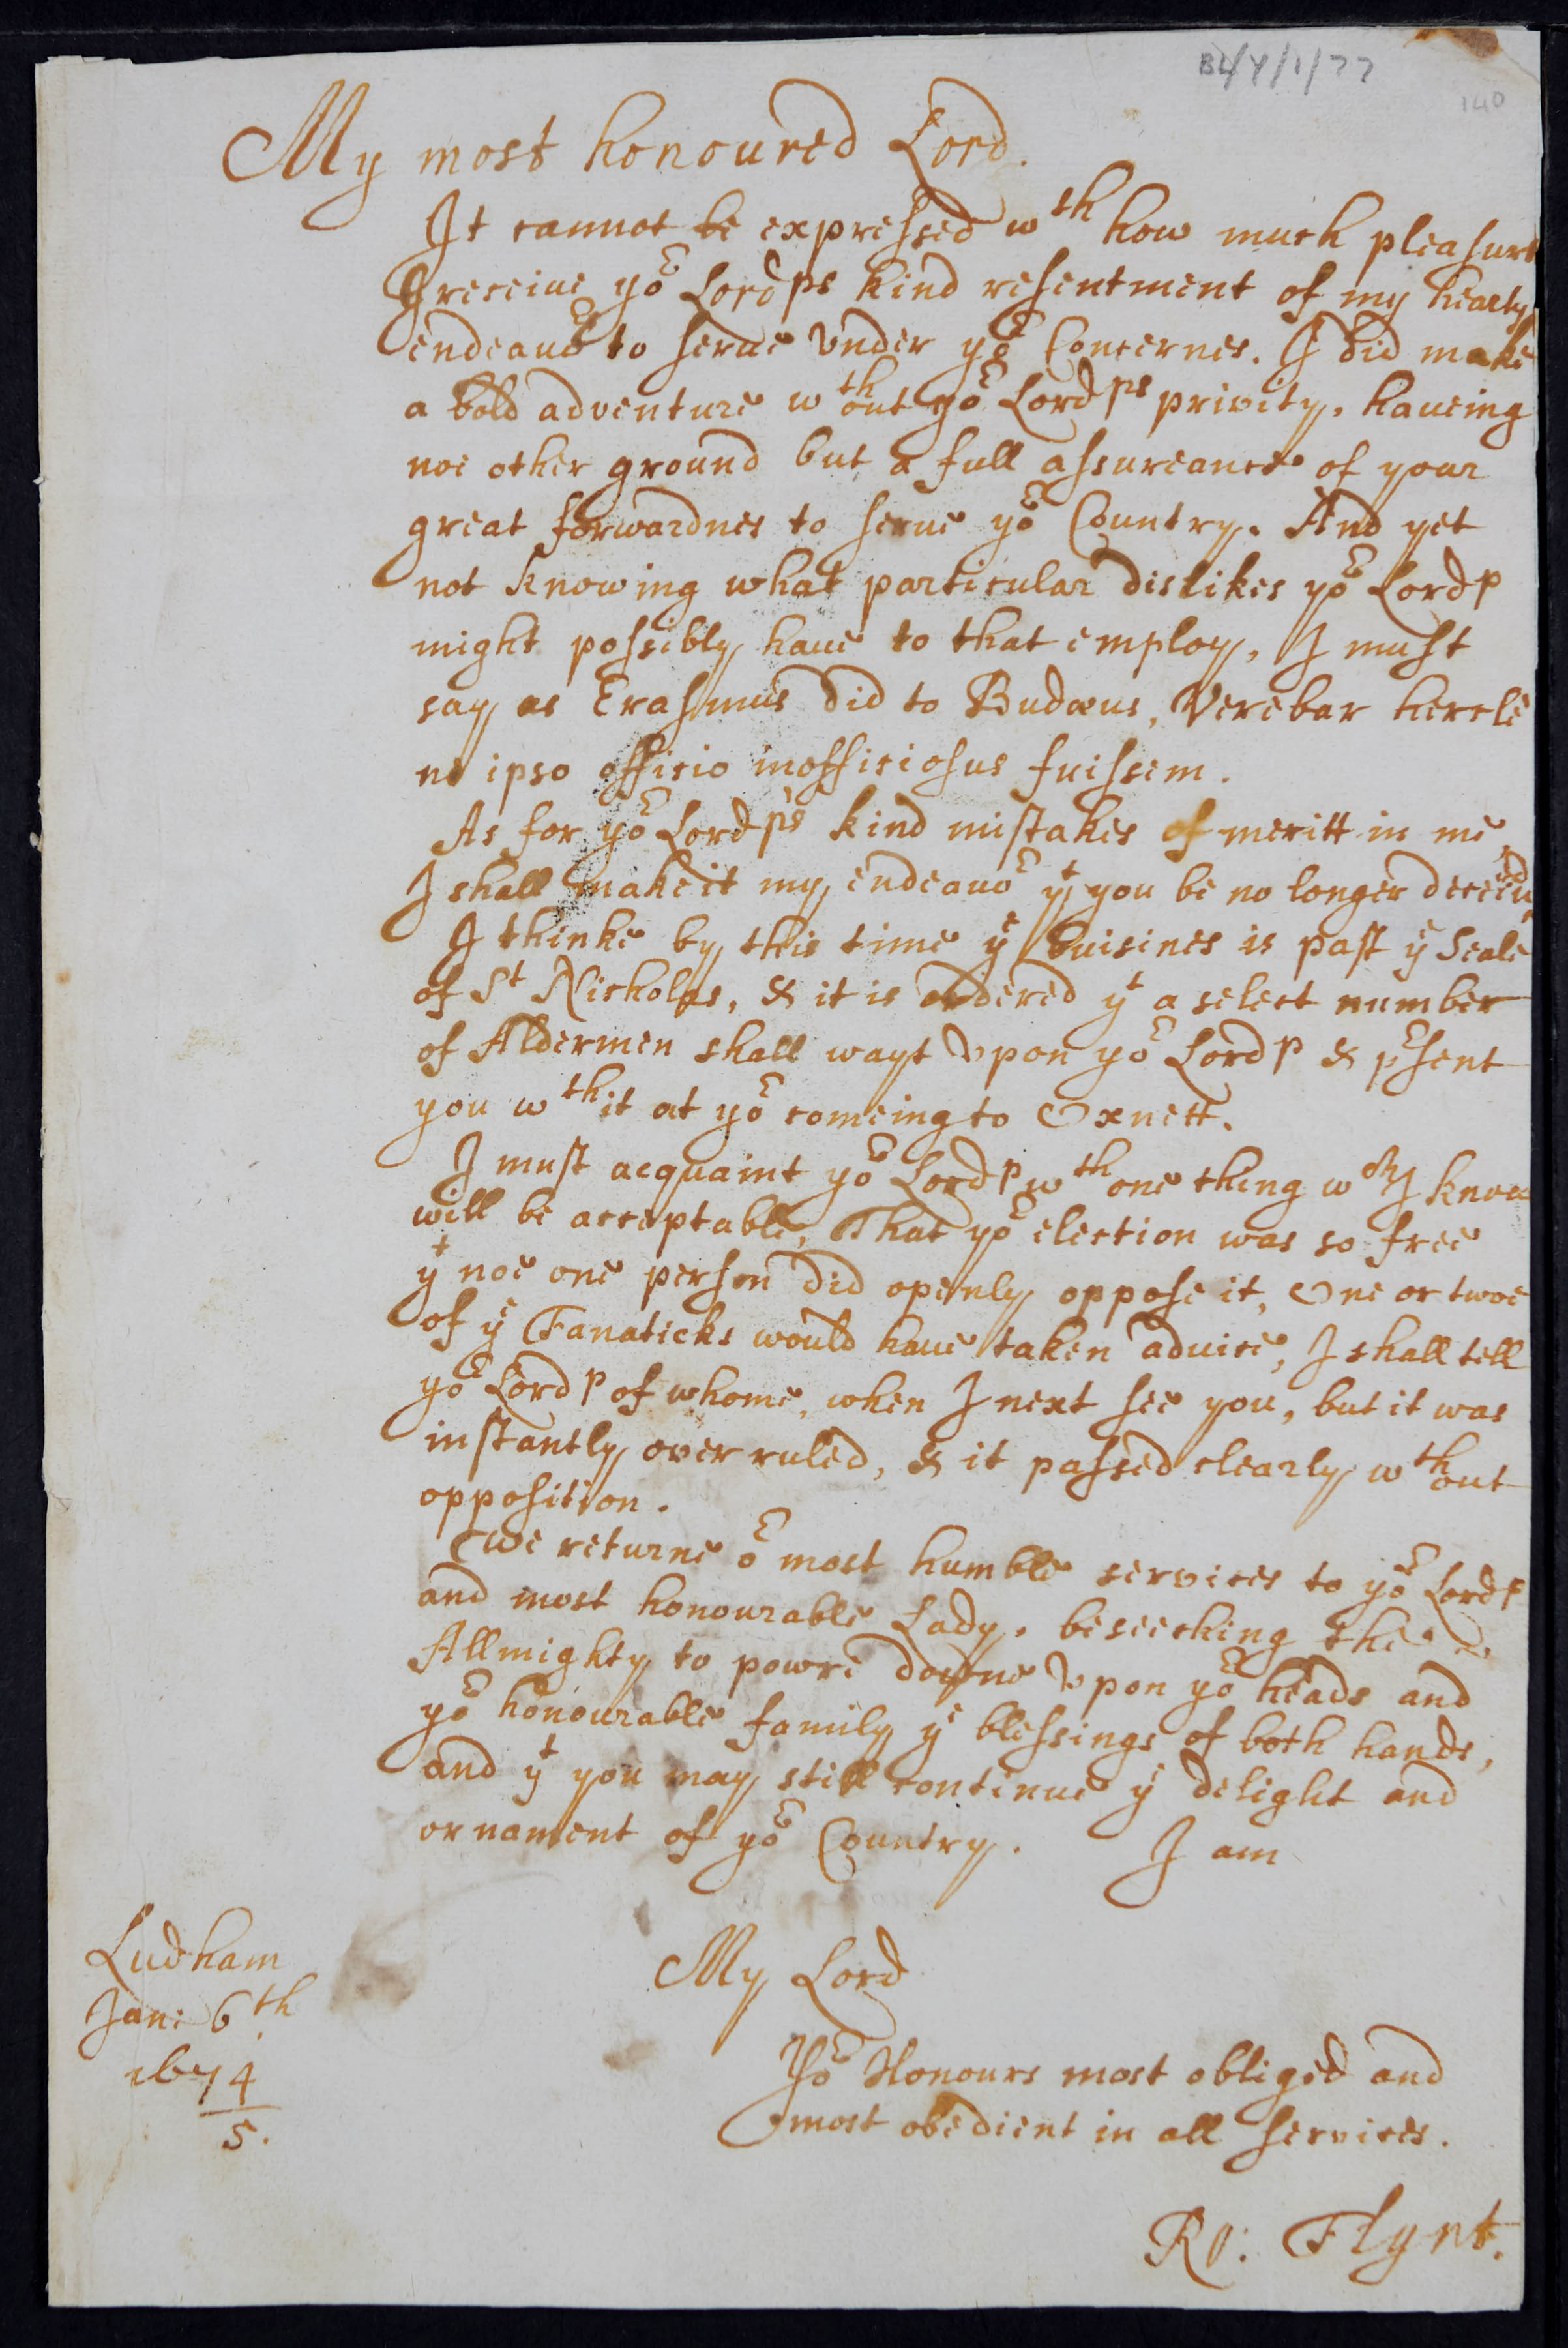 BL/Y/1/77
140
My most honoured Lord.
It cannot be expressed wth how much pleasure
I receiue yor Lordps kind resentment of my hearty
endeauor to serue vnder yor Concernes. I did make
a bold adventure wthout yor Lordps privity, haueing
noe other ground but a full assureance of your
great forwardnes to serue yor Country. And yet
not knowing what particular dislikes yor Lordp
might possibly haue to that employ, I must
say as Erasmus did to Budæus, Verebar hercle
ne ipso officio inofficiosus fuissem.
As for yor Lordps kind mistakes of meritt in me,
I shall make it my endeauor yt you be no longer deceiud,
I thinke by this time ye buisines is past ye Seale
of St Nicholas, & it is ordered yt a select number
of Aldermen shall wayt vpon yor Lordp & prsent
you wth it at yor comeing to Oxnett.
I must acquaint yor Lordp wth one thing wch I know
will be acceptable, That yor election was so free
yt noe one person did openly oppose it, One or twoe
of ye Fanaticks would haue taken aduice, I shall tell
yor Lordp of whome, when I next see you, but it was
instantly over ruled, & it passed clearly wthout
opposition.
We returne or most humble services to yor Lordp
and most honourable Lady, beseeching the
Allmighty to powre downe vpon yor heads and
yor honourable family ye blessings of both hands,
and yt you may still continue ye delight and
ornament of yor Country. I am
My Lord
Yor Honours most obliged and
most obedient in all services.
Ro: Flynt.
Ludham
Jan: 6th
1674
5.